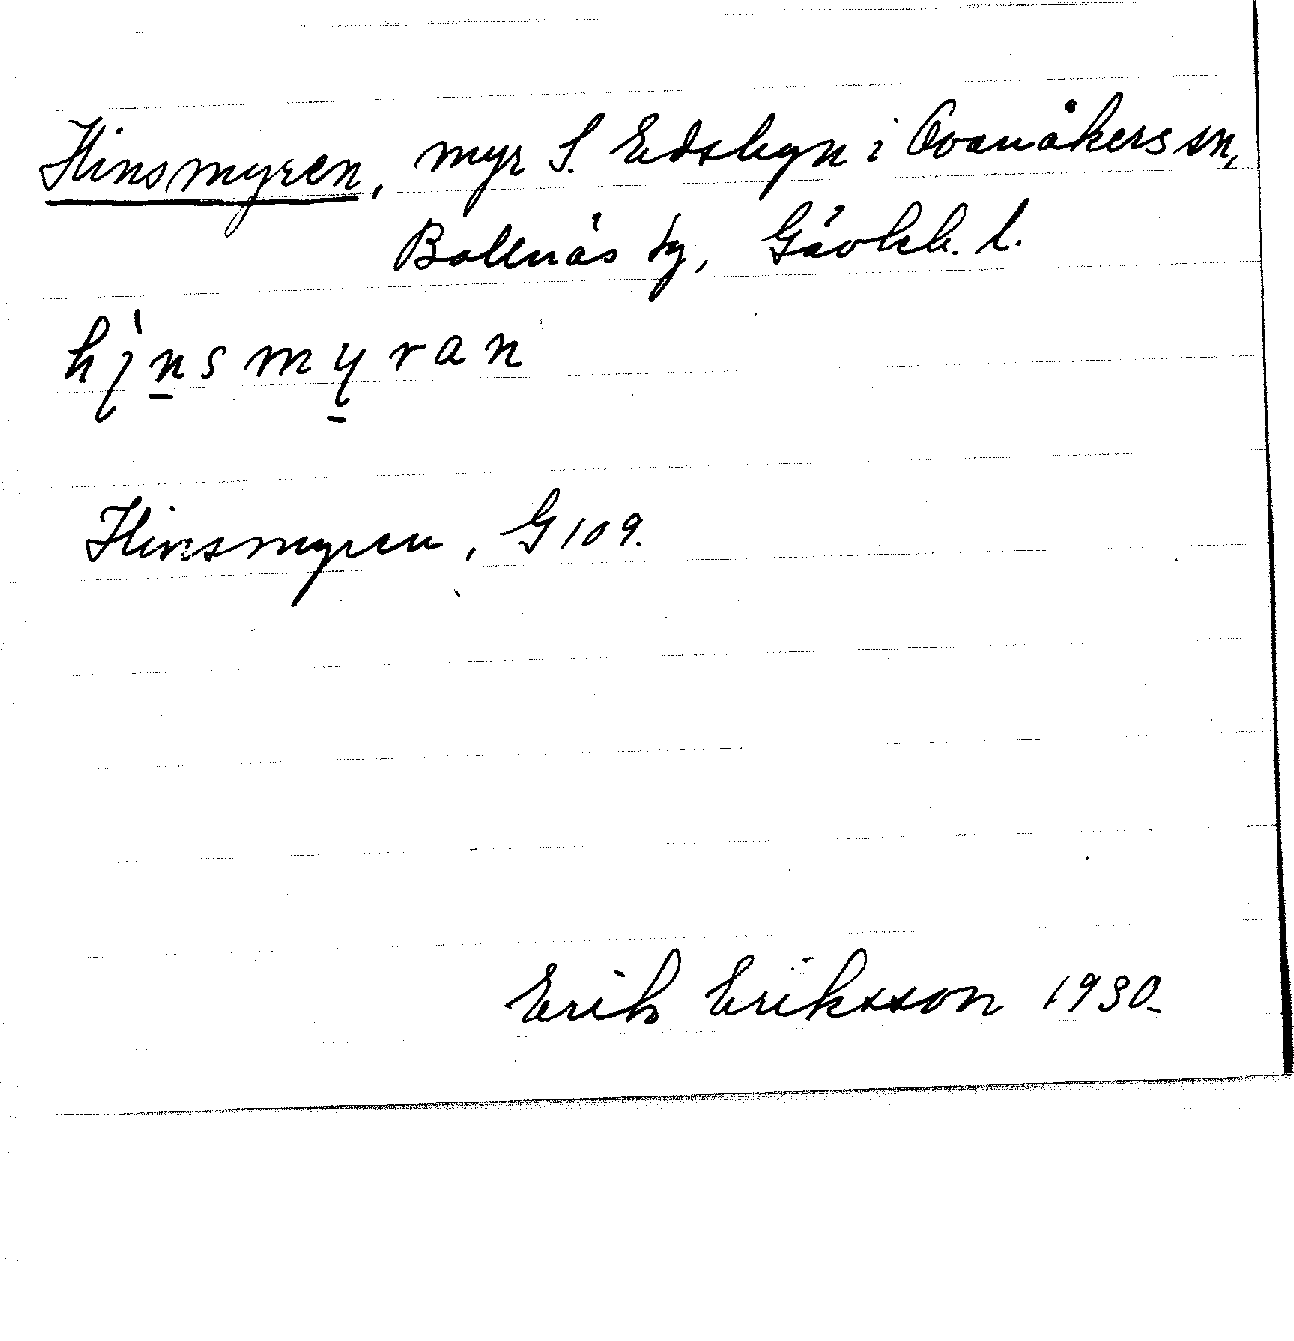 Hinsmyren, myr S. Edsbyn i Ovanåkers sn,
Bollnäs tg, Gävleb. l.
hịnsmyran
Hinsmyren, G 109.
Erik Eriksson 1930